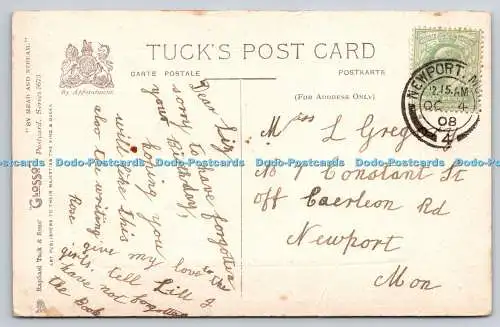 TUCK'S POST CARD
CARTE POSTALE
POSTKARTE
By Appointment
(FOR ADDRESS ONLY)
"BY MEAD AND STREAM."
"GLOSSO" Postcard. Series 7671
Raphael Tuck & Sons'
ART PUBLISHERS TO THEIR MAJESTIES THE KING & QUEEN
NEWPORT. MON
12.15 AM
OC 4
08
4
Dear Liz
sorry to have forgotten
your Birthday,
hoping you
will like this
also the writing
Rose give my love to the
girls. tell Lill I
have not forgotten
the Book
Miss L Greg
No 7 Constant St
off Caerleon Rd
Newport
Mon
Dodo-Postcards Dodo-Postcards Dodo-Postcards Dodo-Postcards Dodo-Postcards